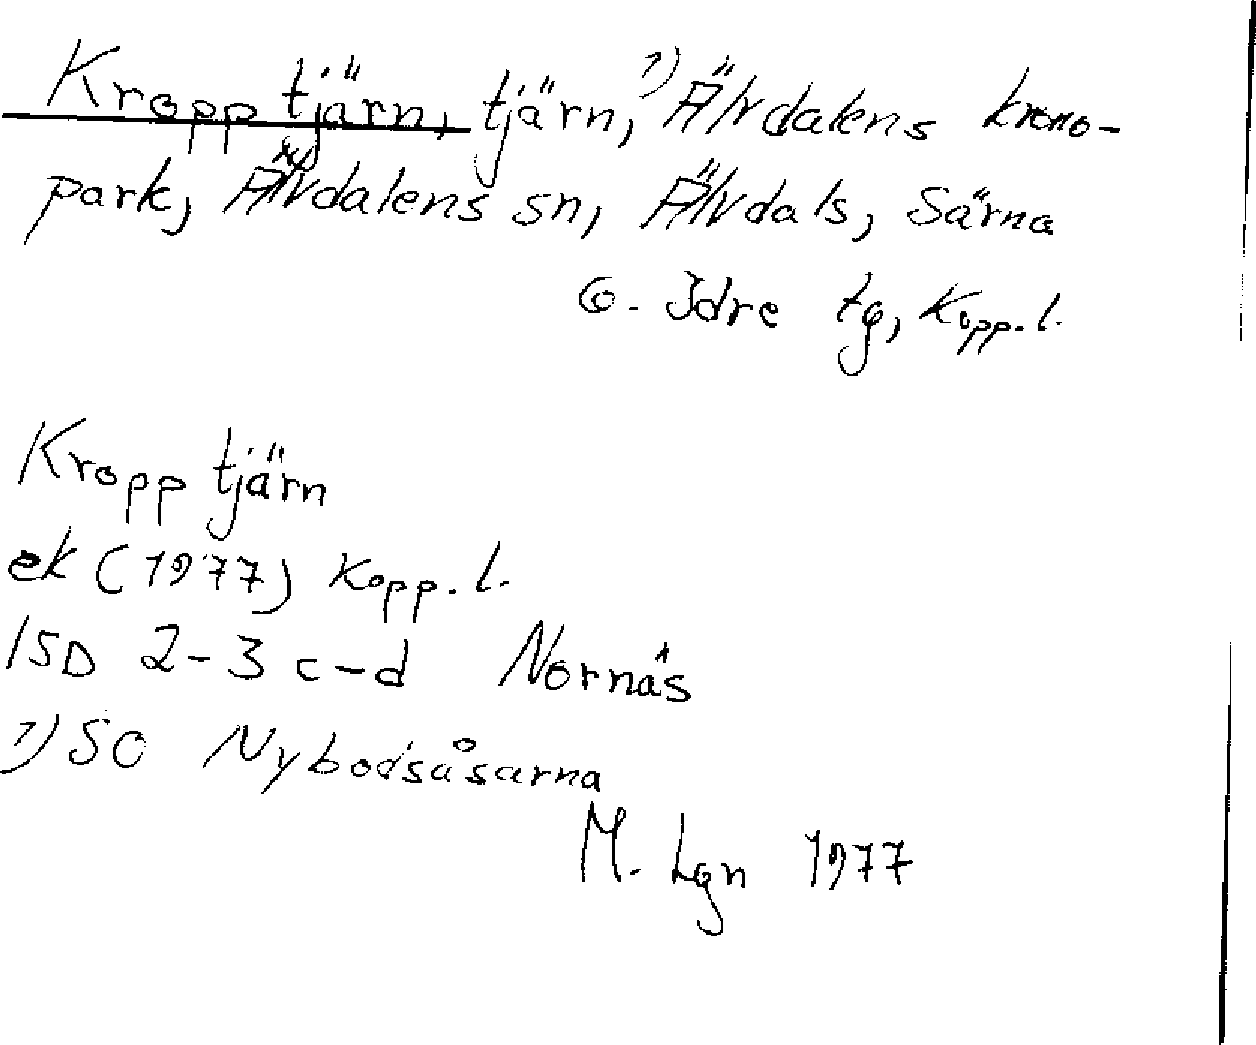 Kropptjärn, tjärn, 1) Älvdalens krono-
park, Älvdalens sn, Älvdals, Särna
o. Idre tg, Kopp. l.
Kropptjärn
ek (1977) Kopp. l.
15D 2-3 c-d Nornäs
1) SO Nybodsåsarna
M. Lgn 1977